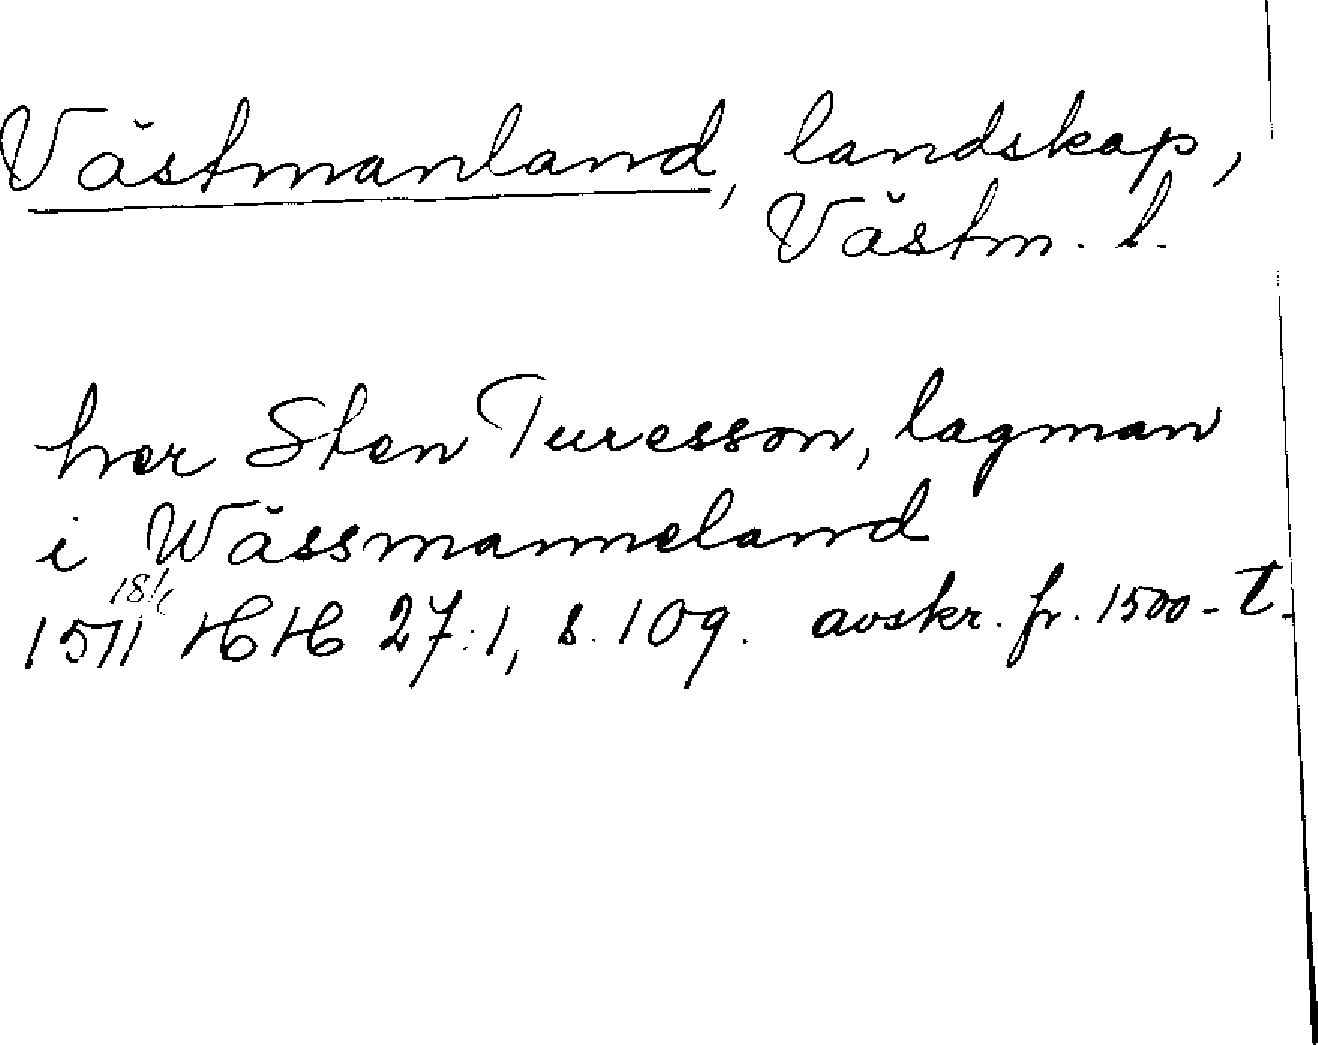 Västmanland, landskap,
Västm. l.
her Sten Turesson, lagman
i Wässmanneland
1511 HH 27:1, s. 109. avskr. fr. 1500-t.